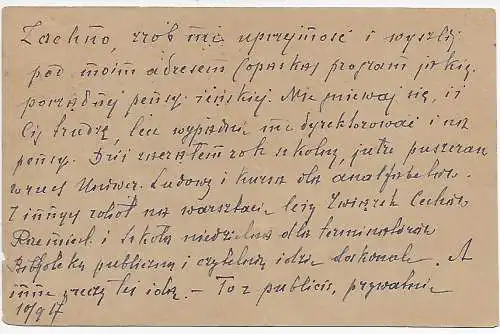 Zachno, zrób mi uprzejmość i wyszlij
pod moim adresem (opaska) program jakiej
porządnej pensy. żeńskiej. Nie gniewaj się, iż
Cię trudzę, lecz wypadnie mi dyrektorować i na
pensy. Dziś zacząłem rok szkolny, jutro puszczam
w ruch Uniwer. Ludowy i kursa dla analfabetów.
Z innych robót na warsztacie leży Związek Cechów
Rzemieśl. i szkoła niedzielna dla terminatorów
Biblioteka publiczna i czytelnia idzie doskonale. A
inne rzeczy też idą. — To z publicis, prywatnie
10/9 17